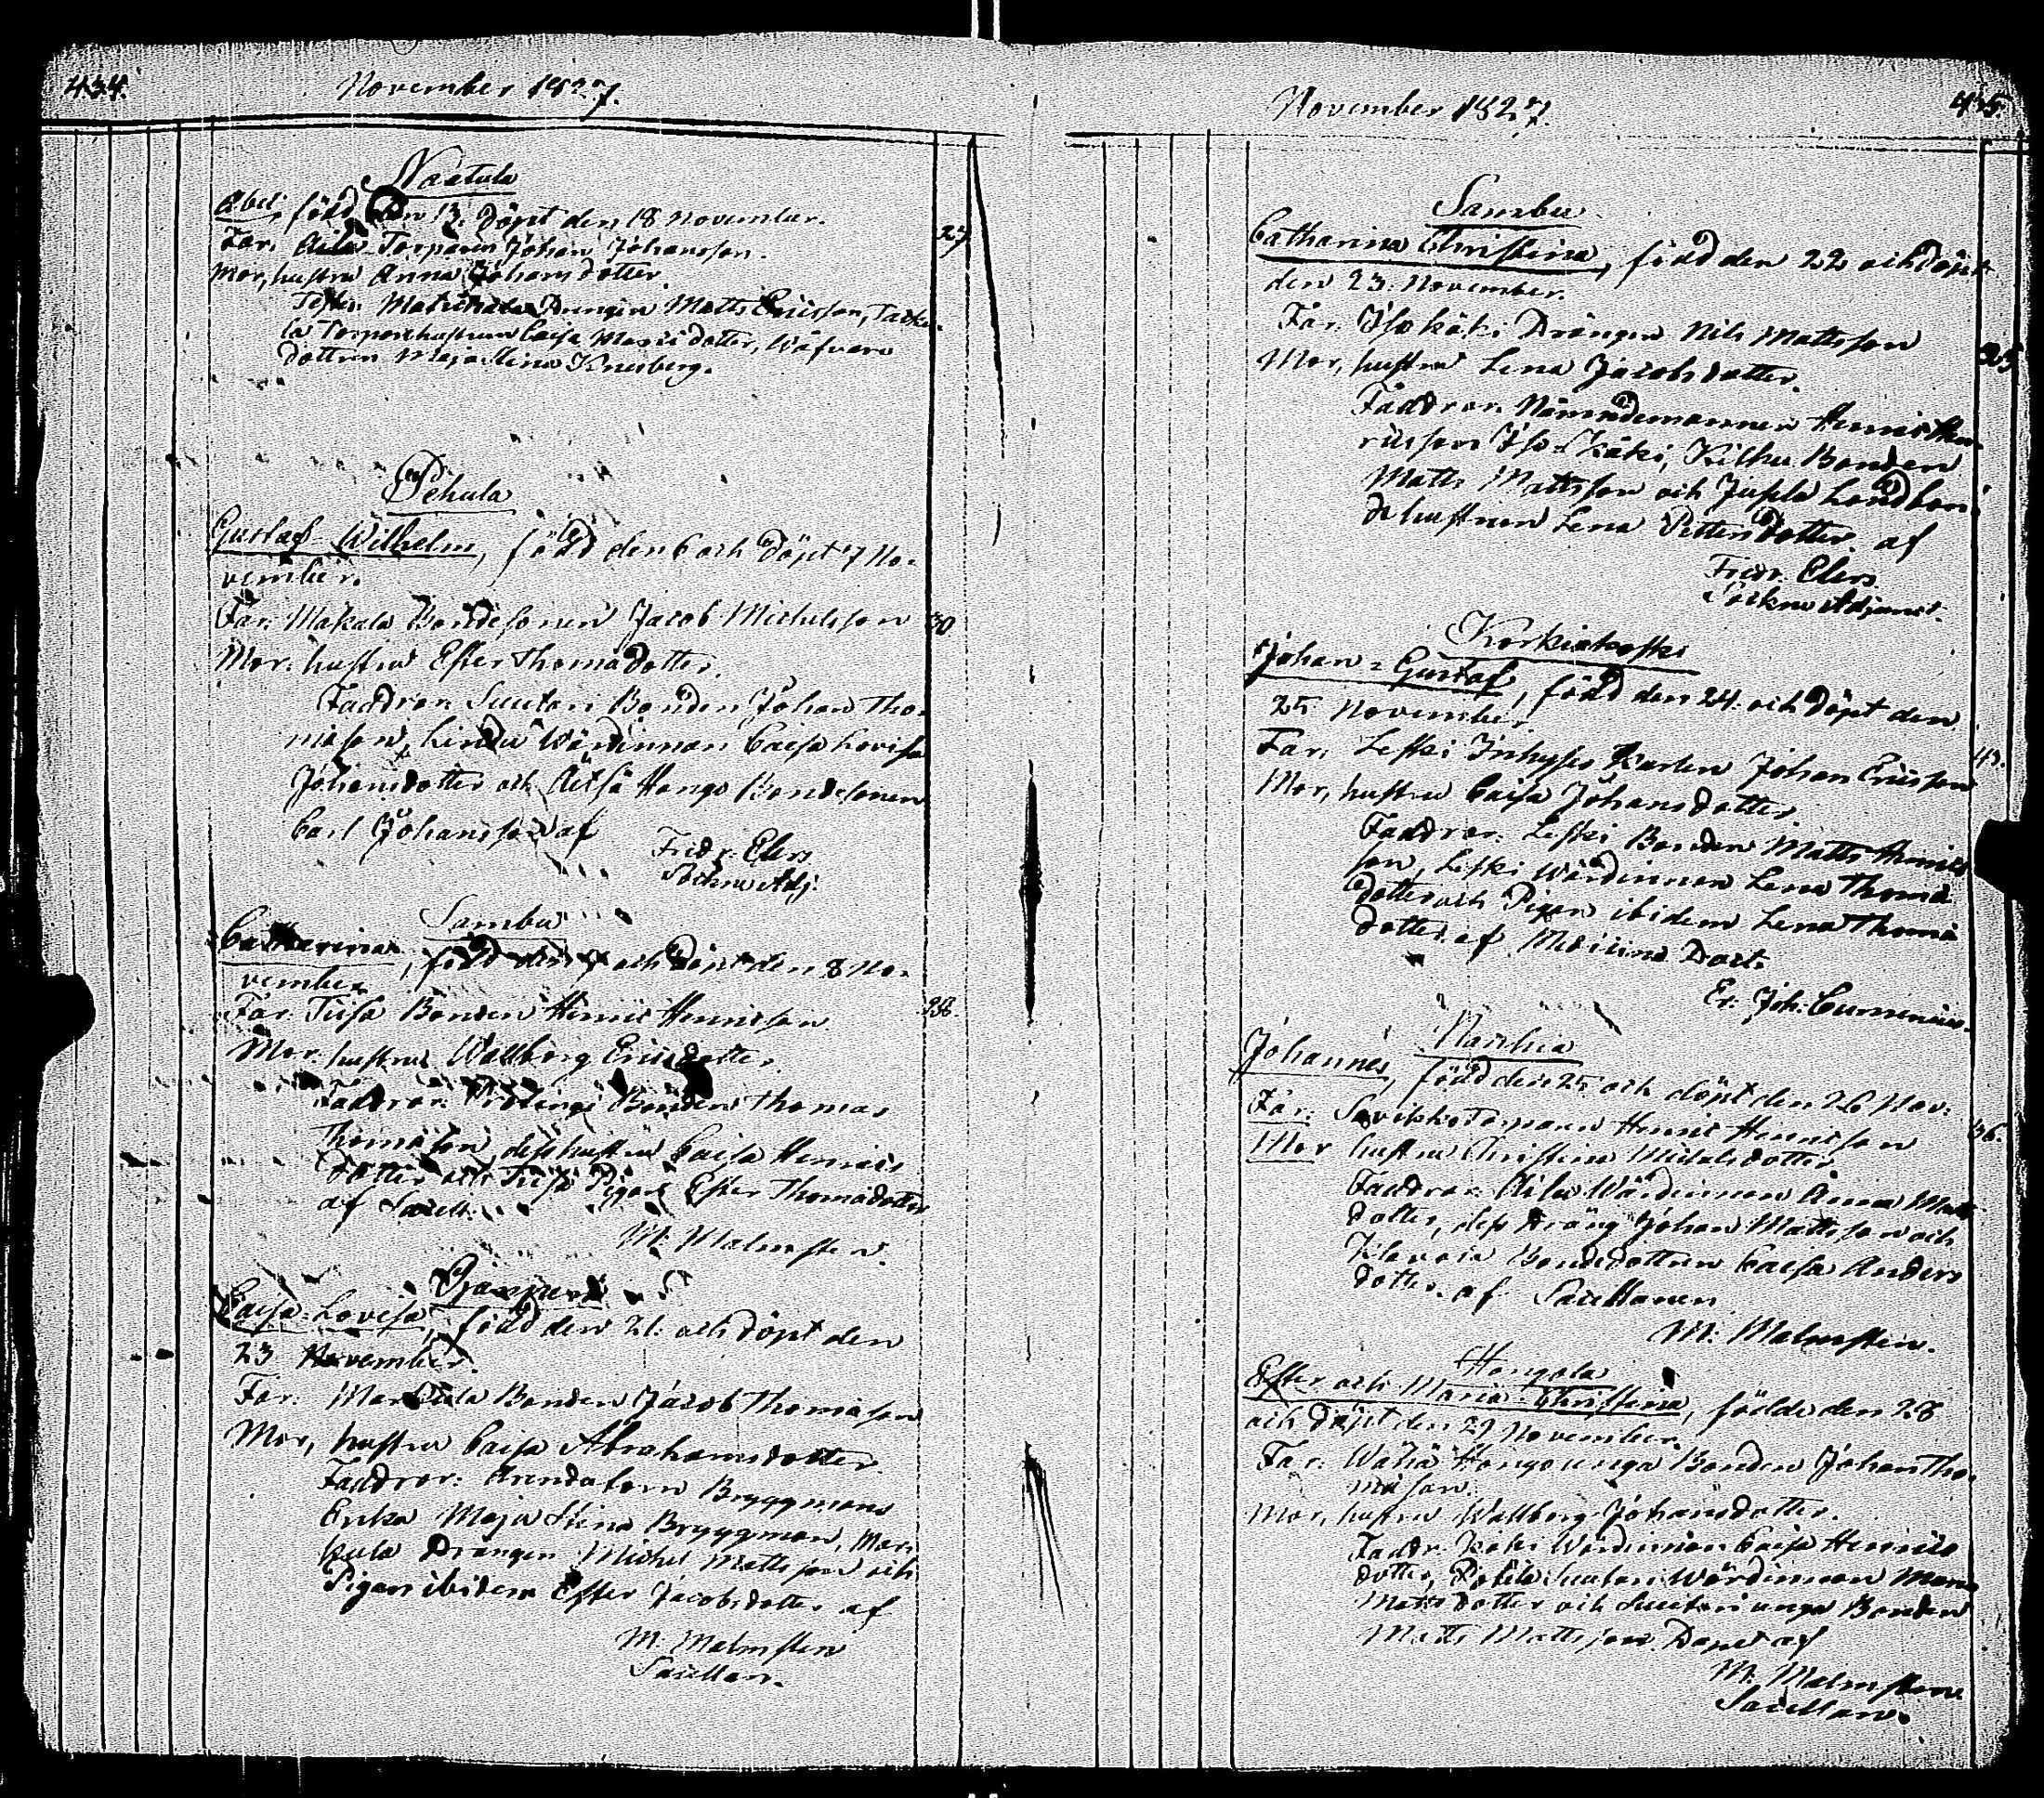 434.
November 1827.
Naatula
Abel, född den 13. döpt den 18 November.
27
Far. Torparen Johan Johansson.
Mor, hustru Anna Johansdotter.
Drengen Matts Ericsson,
la Torparehustrun Caisa dotter, Wäfvare
dottren Maja Stina
Pehula
Gustaf Wilhelm, född den 6 och döpt 7 No-
vember.
Far. Makala Bondesonen Jacob Michelsson
30
Mor. hustru Ester Thomædotter.
Faddrar. Suutari Bonden Johan Tho-
mæson, Wärdinnan Caisa Lovisa
Johansdotter och Hongo Bondesonen
Carl Johansson af
Fredr. Elers
Sockne Adj.
Sambu
Catharina, född den och döpt den 8 No-
vember
Far. Bonden Henric Henricsson
238.
Mor. hustru Wallborg Ericsdotter.
Faddrar. Bonden Thomas
Thomæson, dess hustru Caisa Henrics
dotter och Pigan Ester Thomædotter
af Sacell.
M. Malmsten.
Caisa Lovisa, född den 21. och döpt den
23 November.
Far: Bonden Jacob Thomæson
Mor, hustru Caisa Abrahamsdotter
Faddrar: Arendatorn Bryggmans
Enka Maja Stina Bryggman, Mar-
Drängen Michel Mattsson och
Pigan ibidem Ester Jacobsdotter af
M. Malmsten
Sacellan.
November 1827.
435.
Sambu
Catharina Christina, född den 22 och döpt
den 23. November.
Far. Iso käki Drängen Nils Mattsson
Mor, hustru Lena Jacobsdotter.
Faddrar. Nämndemannen Henric Hen-
ricsson Iso-Käki, Bonden
Matts Mattsson och Jusila Landbon-
dehustrun Lena dotter. af
Fredr. Elers
Sockne Adjunct.
Korkiakoski
Johan Gustaf, född den 24. och döpt den
25 November
Far. Leski Inhyses Karlen Johan Ericsson
43.
Mor, hustru Caisa Johansdotter.
Faddrar: Leski Bonden Matts Henrics
son, Leski Wärdinnan Lena Thomæ
dotter och Pigan ibidem Lena Thomæ
dotter. af Medicine Doct.
Er. Joh.
Narihia
Johannes, född den 25 och döpt den 26 Nov.
Far: Henric Henricsson
36.
Mor hustru Christina Michelsdotter.
Faddrar. Wärdinnan Anna Matts
dotter, dess Dräng Johan Mattsson och
Bondedottren Caisa Anders
dotter. af Sacellanen
M. Malmsten.
Hongola
Ester och Maria Christina, födde den 28
och döpt den 29 November.
Far: Wähä Hongo unga Bonden Johan Tho-
mæson.
Mor, hustru Wallborg Johansdotter.
Faddr. Käki Wärdinnan Caisa Henrics
dotter, Suutari Wärdinnan Maria
Mattsdotter och Suutari unga Bonden
Matts Mattsson. Döpt af
M. Malmsten
Sacellan.